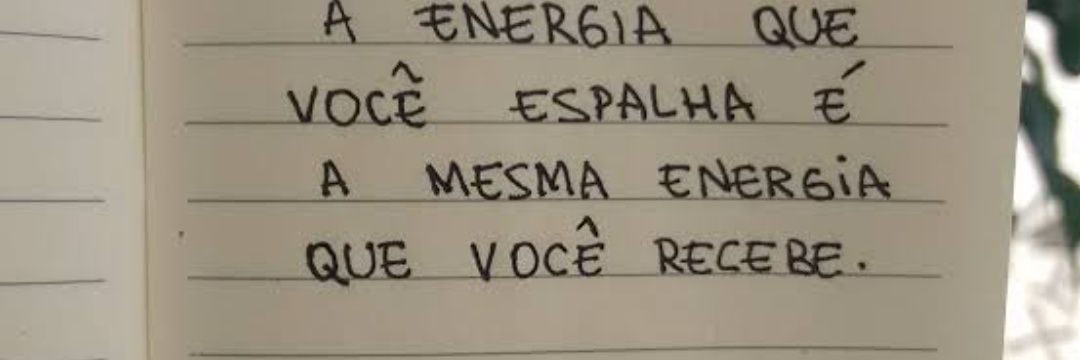 A ENERGIA QUE
VOCÊ ESPALHA É
A MESMA ENERGIA
QUE VOCÊ RECEBE.